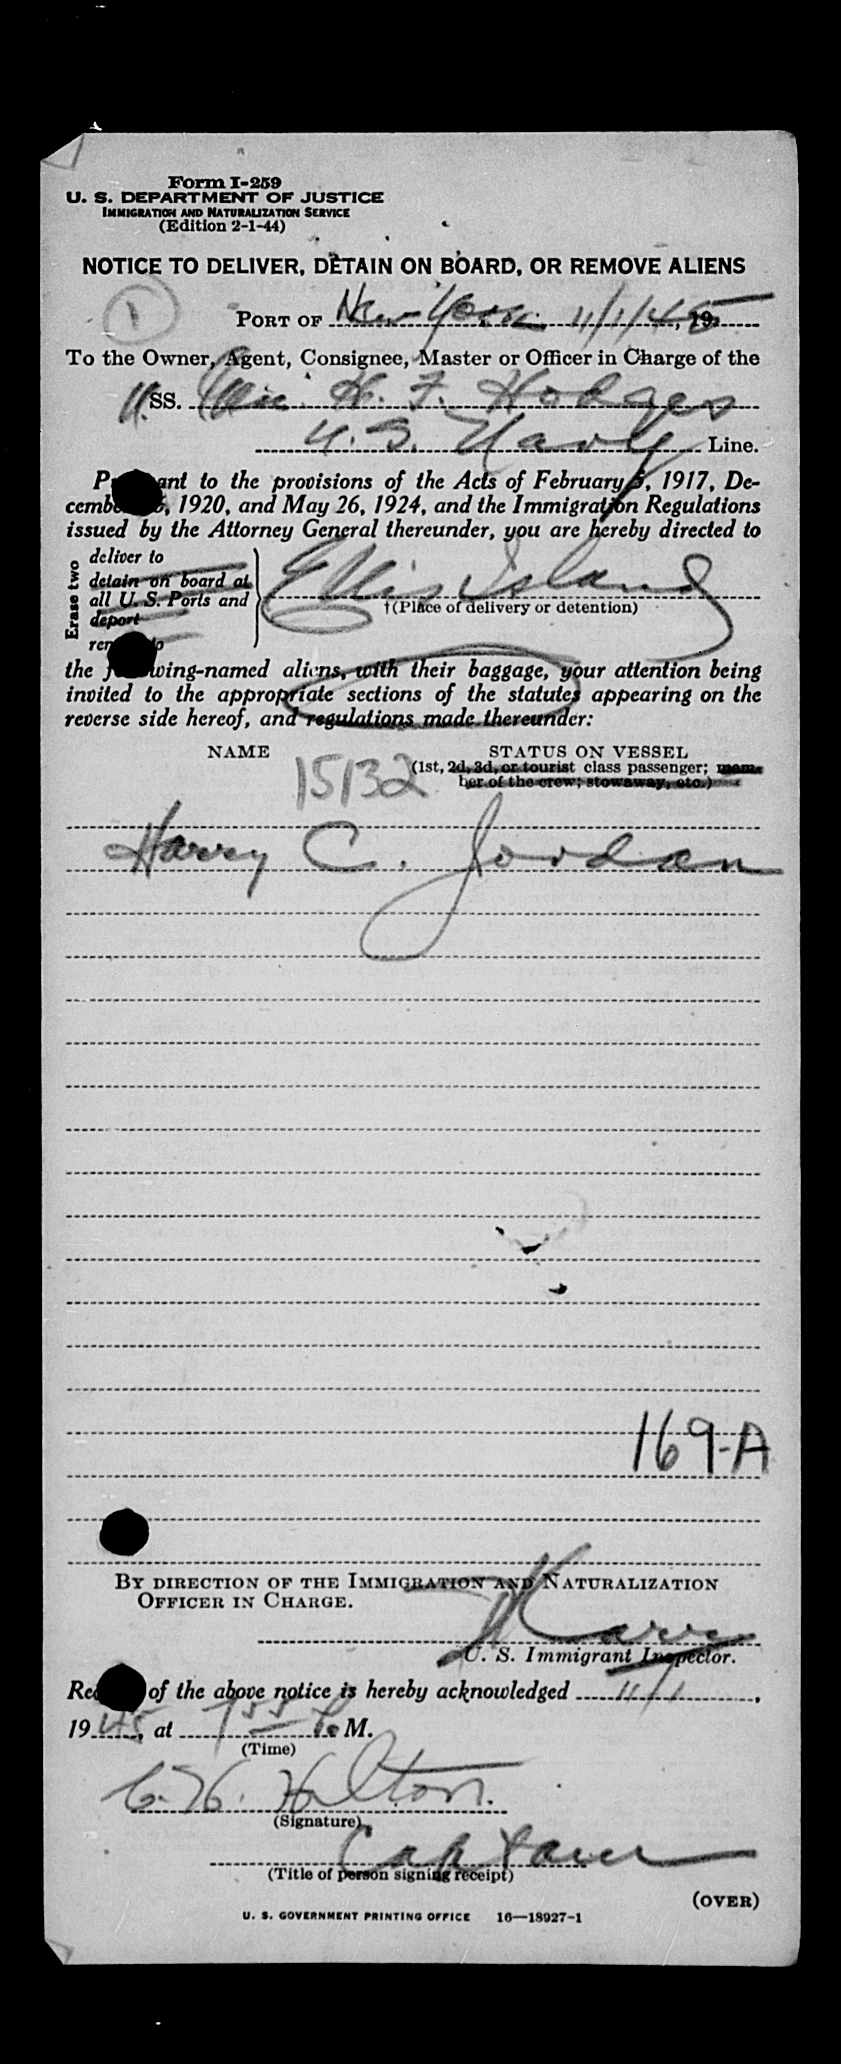 Form I-259
U. S. DEPARTMENT OF JUSTICE
IMMIGRATION AND NATURALIZATION SERVICE
(Edition 2-1-44)
NOTICE TO DELIVER, DETAIN ON BOARD, OR REMOVE ALIENS
1
PORT OF New York 11/1/45, 19
To the Owner, Agent, Consignee, Master or Officer in Charge of the
U.SS. H. F. Hodges
U. S. Navy Line.
ant to the provisions of the Acts of February 5, 1917, De-
cemb , 1920, and May 26, 1924, and the Immigration Regulations
issued by the Attorney General thereunder, you are hereby directed to
Erase two
deliver to
detain on board at
all U. S. Ports and
deport
Ellis Island
†(Place of delivery or detention)
the wing-named aliens, with their baggage, your attention being
invited to the appropriate sections of the statutes appearing on the
reverse side hereof, and regulations made thereunder:
NAME
STATUS ON VESSEL
(1st, 2d, 3d, or tourist class passenger; mem-
ber of the crew; stowaway, etc.)
15132
Harry C. Jordan
169-A
BY DIRECTION OF THE IMMIGRATION AND NATURALIZATION
OFFICER IN CHARGE.
U. S. Immigrant Inspector.
of the above notice is hereby acknowledged 11/1,
1945, at 7 55 P. M.
(Time)
Hilton.
(Signature)
Captain
(Title of person signing receipt)
(OVER)
U. S. GOVERNMENT PRINTING OFFICE 16—18927-1